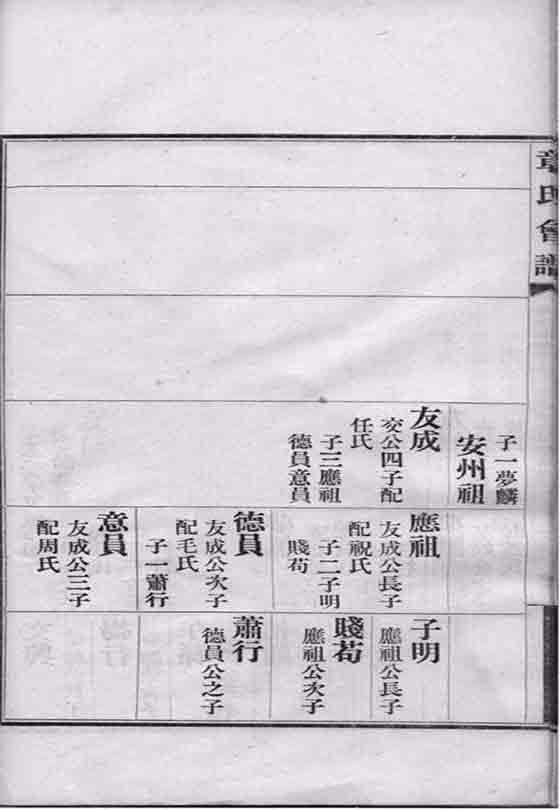 章氏會譜
子一夢麟
安州祖
友成
交公四子配
任氏
子三應祖
德員意員
應祖
友成公長子
配祝氏
子二子明
賤苟
德員
友成公次子
配毛氏
子一蕭行
意員
友成公三子
配周氏
子明
應祖公長子
賤苟
應祖公次子
蕭行
德員公之子